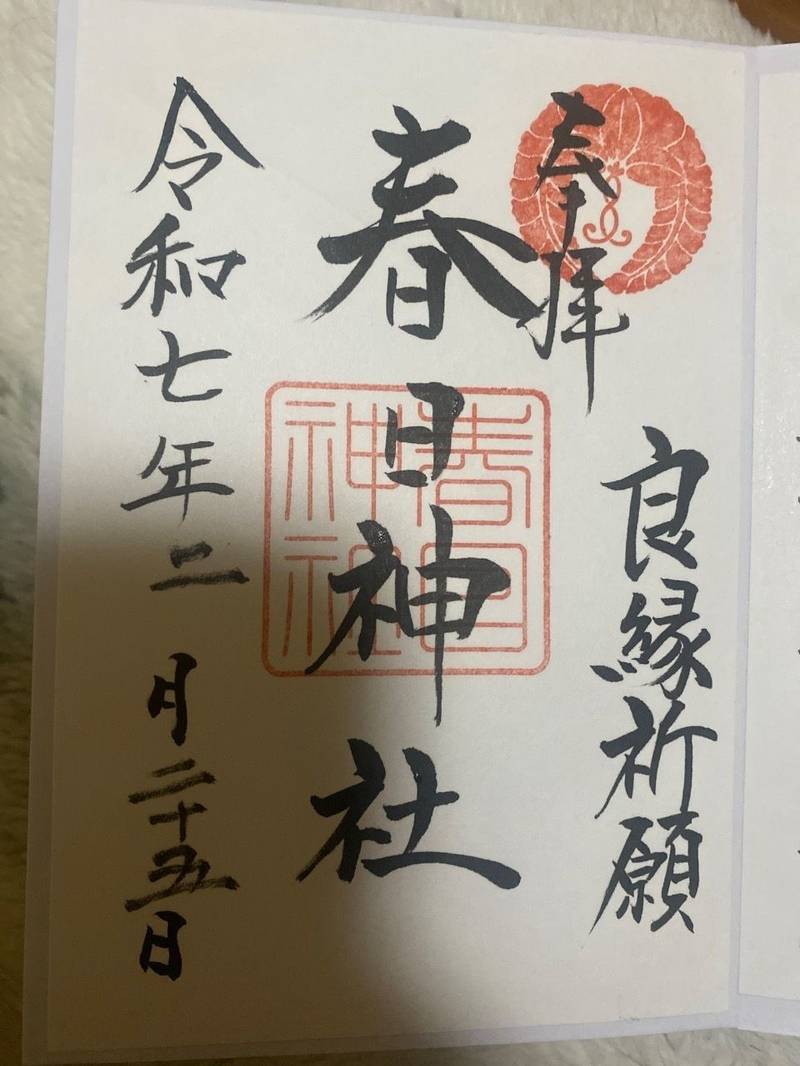 奉拝
良縁祈願
春日神社
春日神社
令和七年二月二十五日